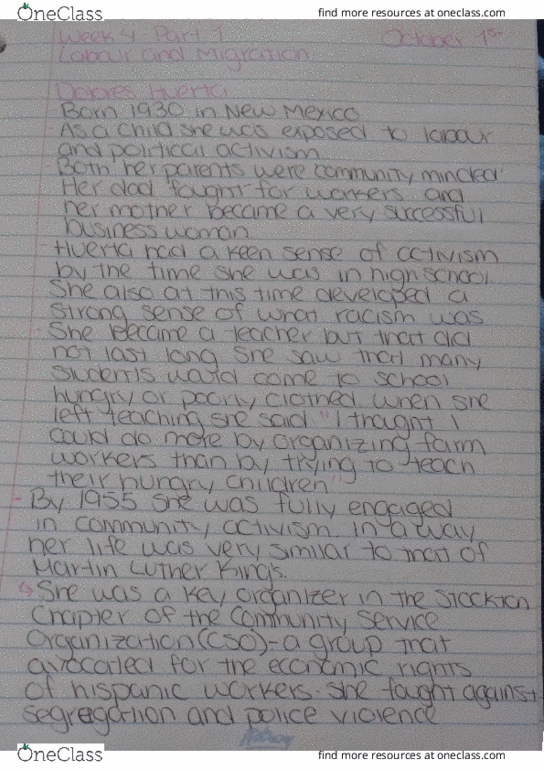 OneClass
find more resources at oneclass.com
Week 4 Part 1 October 1st
Labour and Migration
Dolores Huerta
- Born 1930 in New Mexico
- As a child she was exposed to labour
and political activism
- Both her parents were community minded
Her dad fought for workers and
her mother became a very successful
business woman
- Huerta had a keen sense of activism
by the time she was in high school
She also at this time developed a
strong sense of what racism was
- She became a teacher but that did
not last long she saw that many
students would come to school
hungry or poorly clothed when she
left teaching she said "I thought I
could do more by organizing farm
workers than by trying to teach
their hungry children"
- By 1955 she was fully engaged
in community activism in a way
her life was very similar to that of
Martin Luther King's
↳ She was a key organizer in the Stockton
Chapter of the Community Service
Organization (CSO) - a group that
avocated for the economic rights
of hispanic workers. She fought against
segregation and police violence
OneClass
find more resources at oneclass.com